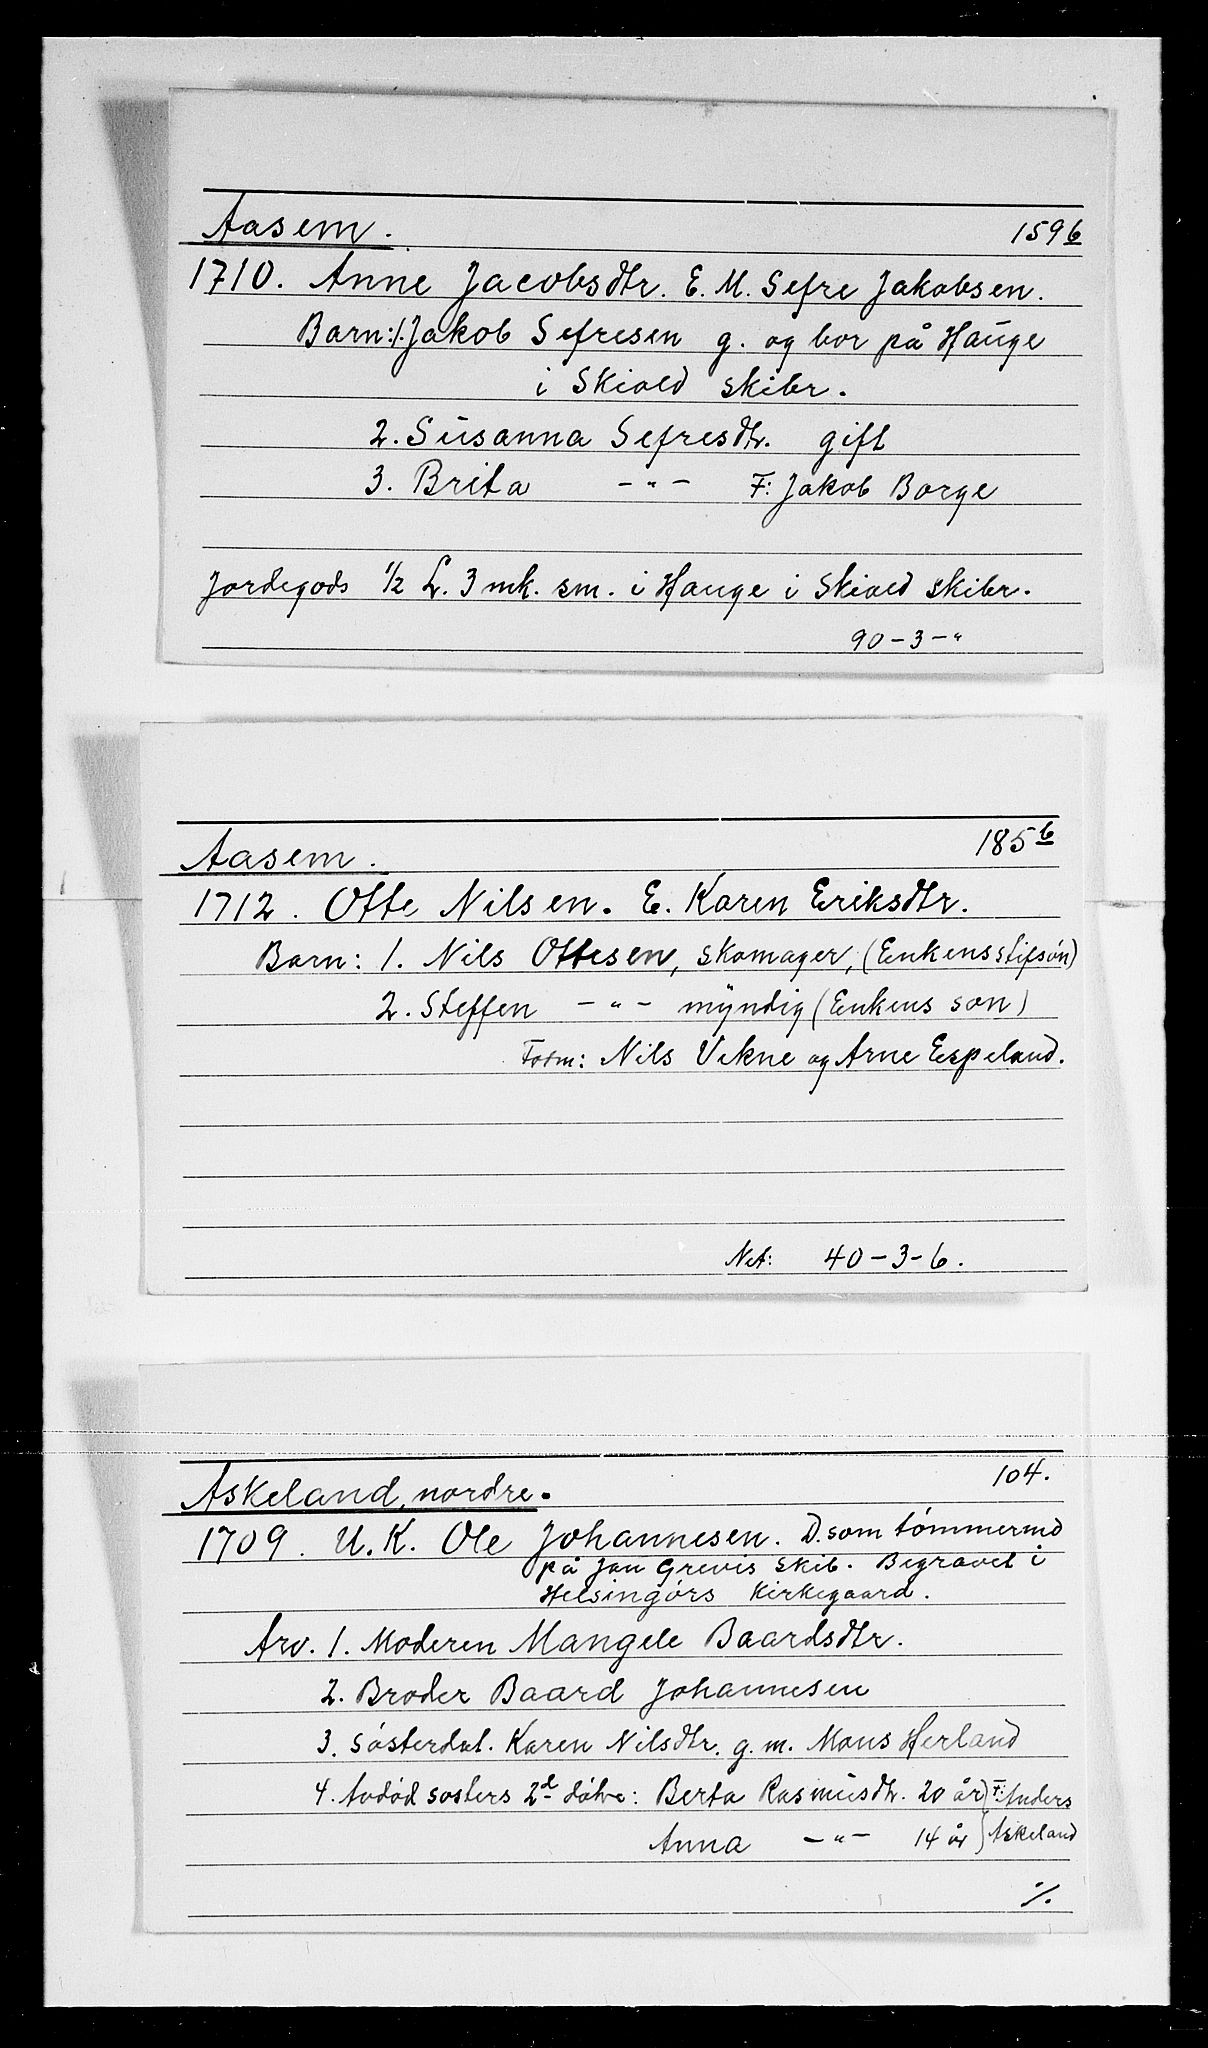 Aasem. 159b
1710. Anne Jacobsdtr. E. M. Sefre Jakobsen.
Barn: 1. Jakob Sefresen g. og bor på Hauge
i Skiold skibr.
2. Susanna Sefresdtr. gift
3. Brita -"- F: Jakob Borge
Jordegods 1/2 L. 3 mk. sm. i Hauge i Skiold skibr.
90-3-"
Aasem. 185b
1712. Otte Nilsen. E. Karen Eriksdtr.
Barn: 1. Nils Ottesen, skomager, (Enkens stifsøn)
2. Steffen -"- myndig (Enkens søn)
Form: Nils Vikne og Arne Espeland.
Net: 40-3-6.
Askeland, nordre. 104.
1709. U.K. Ole Johannesen. D. som tømmermd
på Jan Grevis Skib. Begravet i
Helsingørs Kirkegaard.
Arv. 1. Moderen Mangele Baardsdtr.
2. Broder Baard Johannesen
3. Søsterdat. Karen Nilsdtr. g. m. Mons Herland
4. Avdød søsters 2d døtre: Berta Rasmusdtr. 20 år) F: Anders
Anna -"- 14 år) Askeland
%.